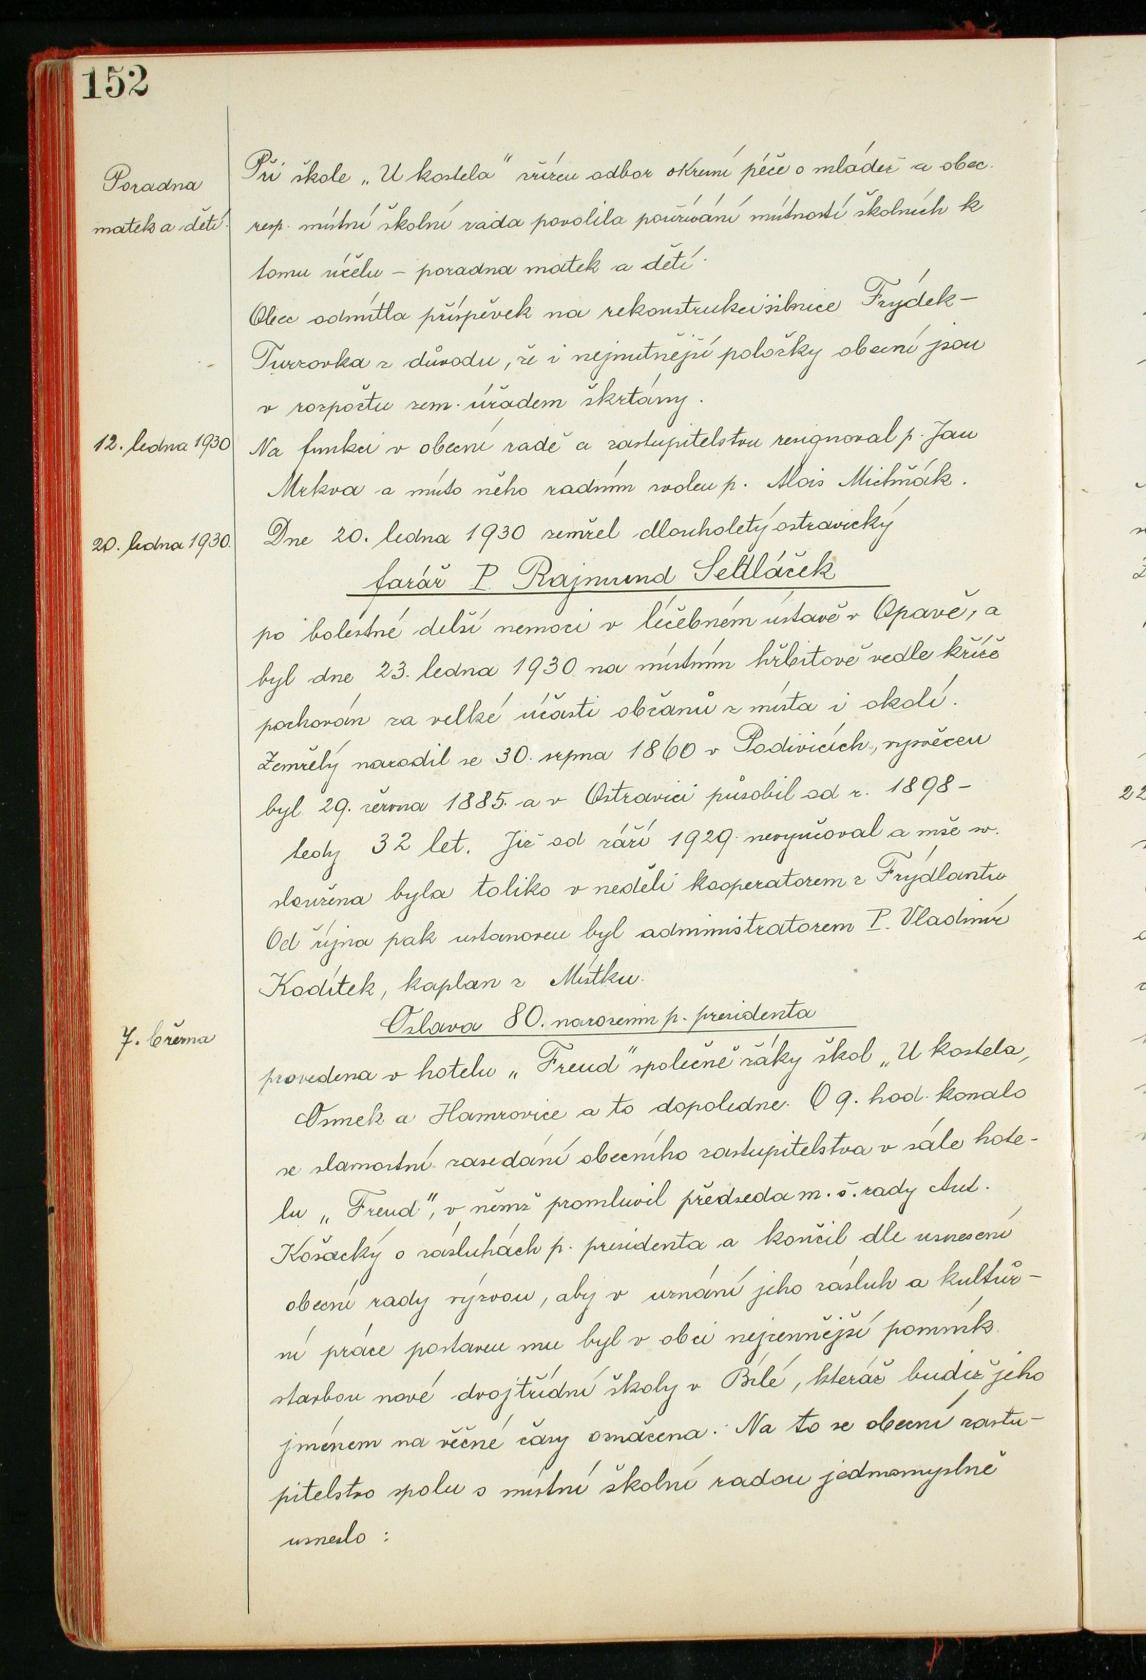 152
Poradna
matek a dětí.
Při škole „U kostela" zřízen odbor okresní péče o mládež a obec.
resp. místní školní rada povolila používání místností školních k
tomu účelu – poradna matek a dětí.
Obec odmítla příspěvek na rekonstrukci silnice Frýdek–
Turzovka z důvodu, že i nejnutnější položky obecní jsou
v rozpočtu zem. úřadem škrtány.
12. ledna 1930
Na funkci v obecní radě a zastupitelstvu resignoval p. Jan
Mrkva a místo něho radním zvolen p. Alois Michňák.
20. ledna 1930.
Dne 20. ledna 1930 zemřel dlouholetý ostravický
farář P. Rajmund Sedláček
po bolestné delší nemoci v léčebném ústavě v Opavě, a
byl dne 23. ledna 1930 na místním hřbitově vedle kříže
pochován za velké účasti občanů z místa i okolí.
Zemřelý narodil se 30. srpna 1860 v Podivicích, vysvěcen
byl 29. června 1885 a v Ostravici působil od r. 1898 –
tedy 32 let. Již od září 1929 nevyučoval a mše sv.
sloužena byla toliko v neděli kooperatorem z Frýdlantu
Od října pak ustanoven byl administratorem P. Vladimír
Kodítek, kaplan z Místku.
7. března
Oslava 80. narozenin p. presidenta
provedena v hotelu „Freud" společně žáky škol „U kostela,
Osmek a Hamrovice a to dopoledne. O 9. hod. konalo
se slavnostní zasedání obecního zastupitelstva v sále hote-
lu „Freud", v němž promluvil předseda m. š. rady Ant.
Košacký o zásluhách p. presidenta a končil dle usnesení
obecní rady výzvou, aby v uznání jeho zásluh a kultur-
ní práce postaven mu byl v obci nejcennější pomník
stavbou nové dvojtřídní školy v Bílé, kteráž budiž jeho
jménem na věčné časy označena. Na to se obecní zastu-
pitelstvo spolu s místní školní radou jednomyslně
usneslo :